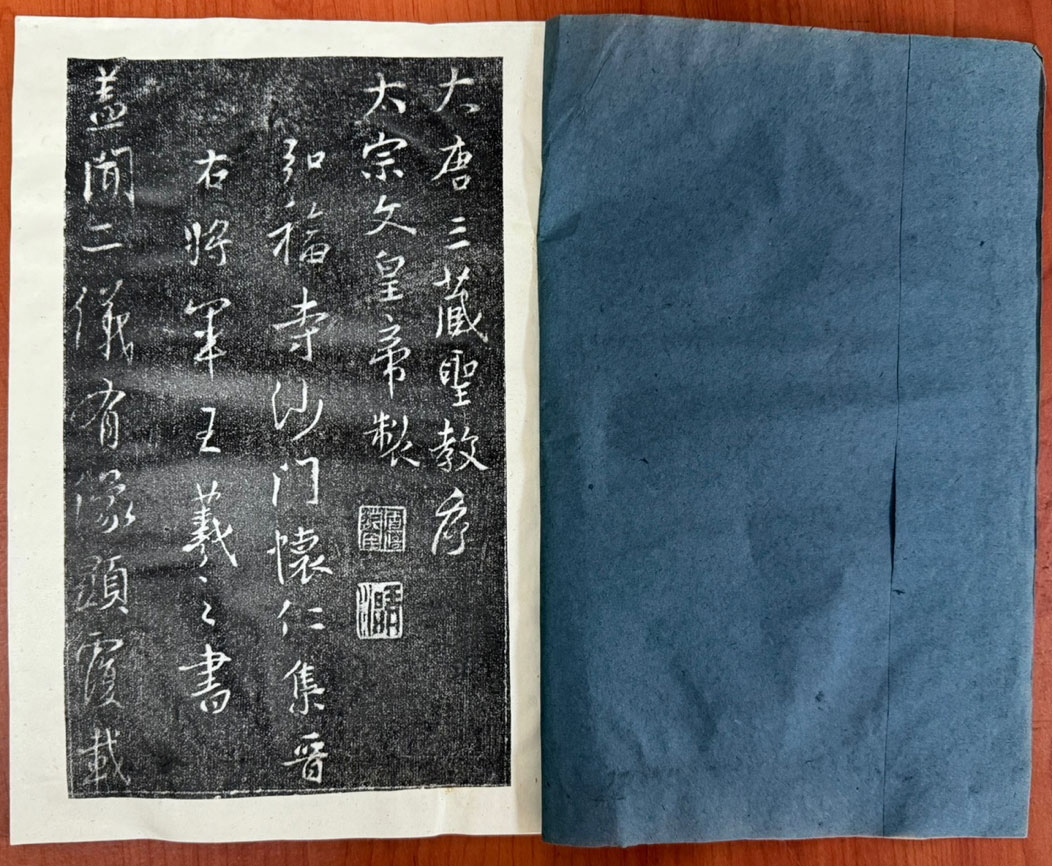 大唐三藏聖教序
太宗文皇帝製
弘福寺沙门懷仁集晋
右將軍王羲之書
盖闻二儀有像顯覆載